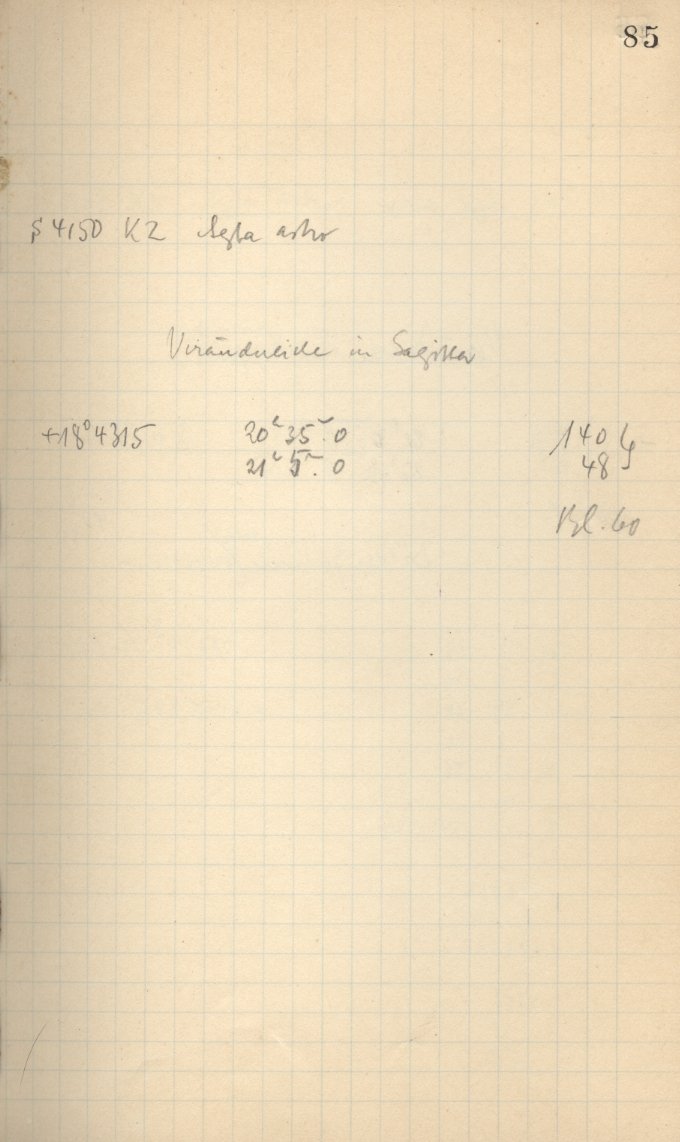 85
4150 K2 Agfa astro
Veränderliche in Sagitta
+18°4315 20ʰ 35ᵐ.0 140
21ʰ 5ᵐ.0 48
Bl. 60